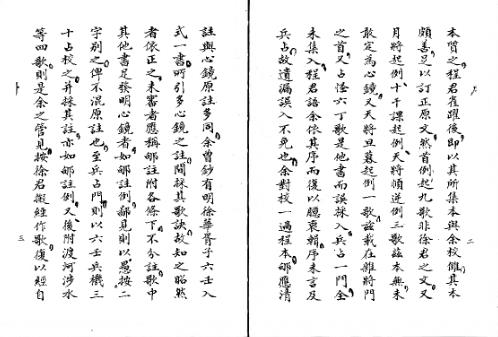 本質之程君雀躍後即以其所集本與余校讎其本
頗善足以訂正原文然首例起九歌非徐君之文又
月將起例十干課起例天將順逆例三歌茲本無未
敢定為心鏡又天將旦暮起例一歌茲載在雜將門
之首又占怪六丁歌是他書而誤採入兵占一門全
未集入程君語余依其序而復以臆衷輯序未言及
兵占故遺漏誤入不免也余對校一過程本邨應清
註與心鏡原註多同余曾鈔有明徐華胥子六壬入
式一書所引多心鏡之註間採其歌訣故知之昭然
者依正之未審者應稱邨註附各條下不分註歌中
其他書足發明心鏡者如邨註例鄙見則以愚按二
字別之俾不混原註也至兵占門則以六壬兵機三
十占校之并採其註亦如邨註例又後附渡河涉水
等四歌則是余之管見按徐君擬經作歌復以經自
二
三